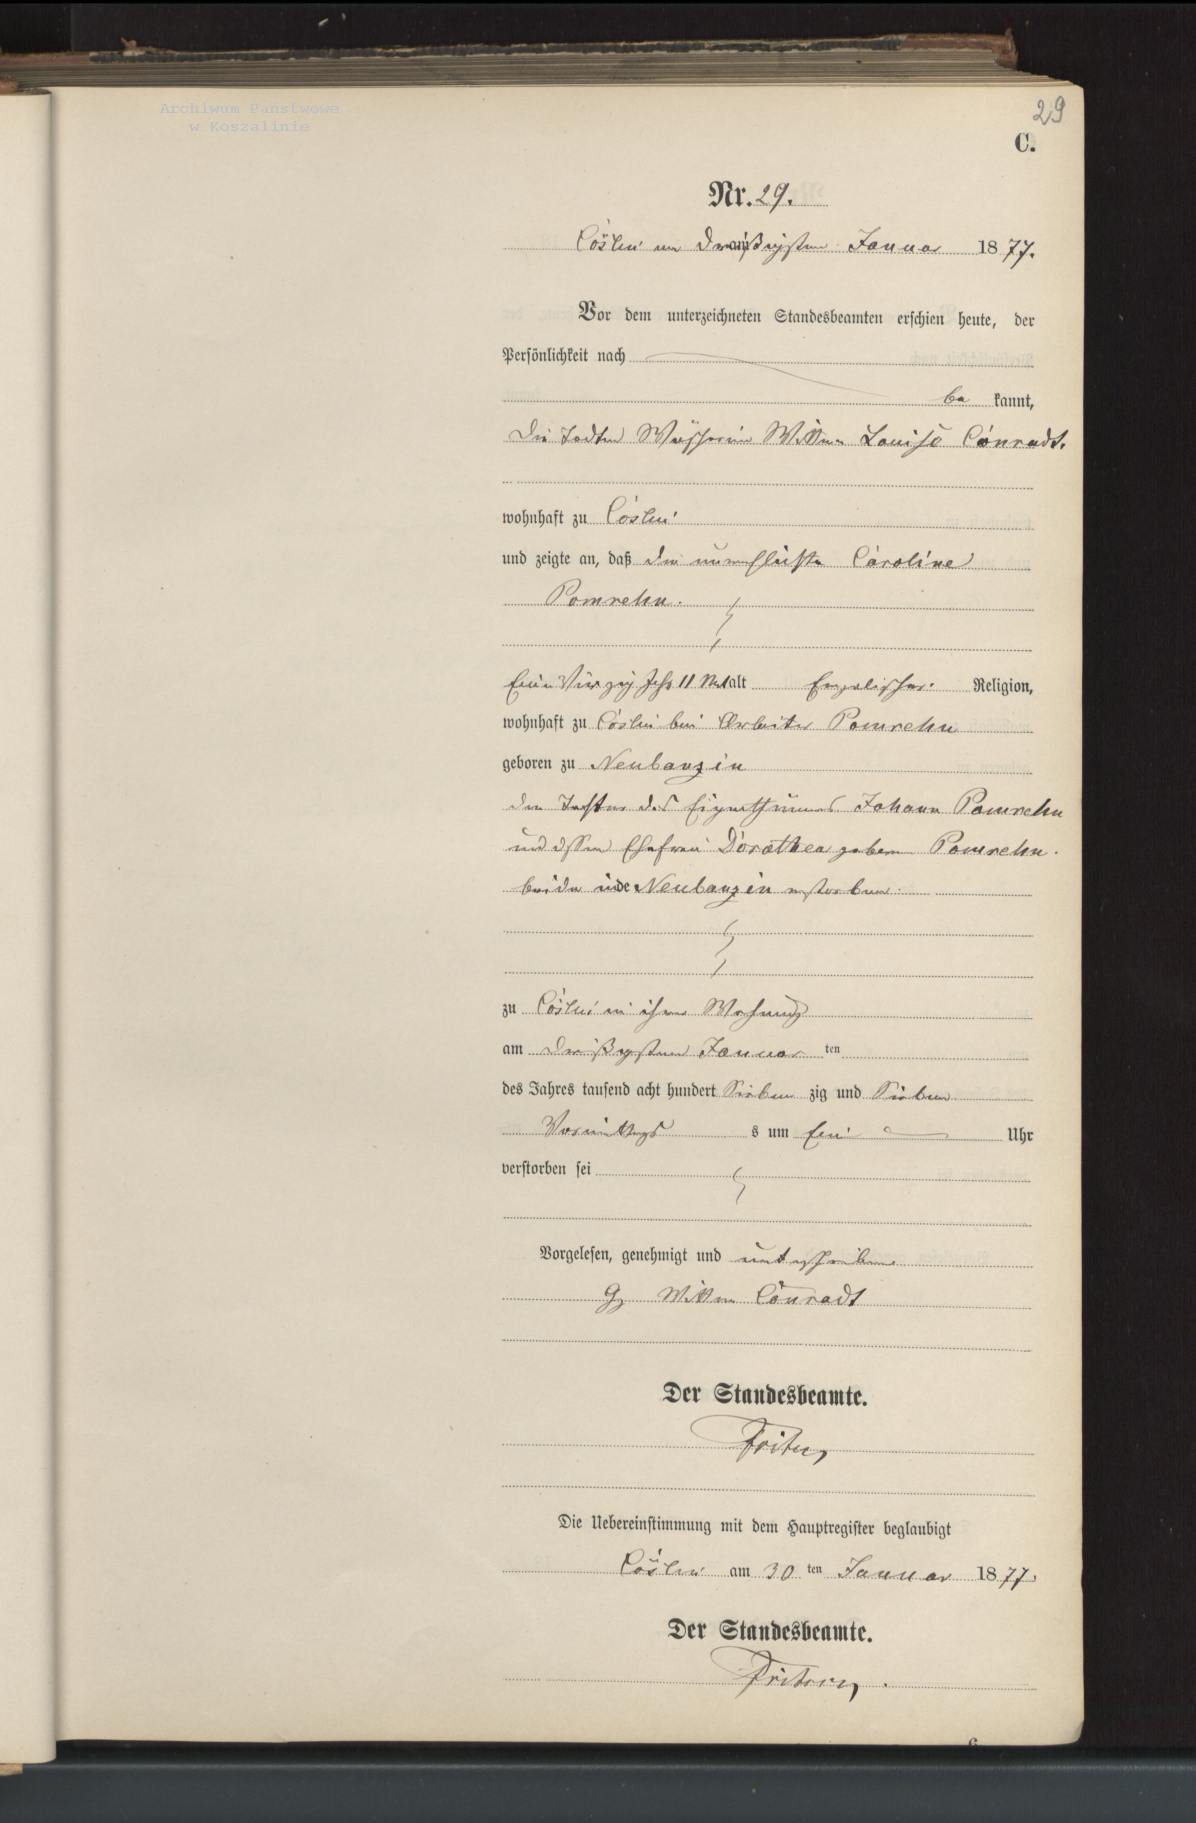 Archiwum Państwowe
w Koszalinie
29
C.
Nr. 29.
Cöslin am Dreißigsten Januar 1877.
Vor dem unterzeichneten Standesbeamten erschien heute, der
Persönlichkeit nach
be kannt,
die Wittwe Louise Conradt.
wohnhaft zu Cöslin
und zeigte an, daß die unverehelichte Caroline
Pomrehn.
Ein Vierzig Jahr 11 Mt alt Evangelischer Religion,
wohnhaft zu Cöslin bei Arbeiter Pomrehn
geboren zu Neubanzin
die Tochter des Eigenthümers Johann Pomrehn
und dessen Ehefrau Dorothea geborne Pomrehn.
beide in Neubanzin verstorben.
zu Cöslin in ihrer Wohnung
am Dreißigsten Januar ten
des Jahres tausend acht hundert Sieben zig und Sieben
Vormittags s um Ein Uhr
verstorben sei
Vorgelesen, genehmigt und unterschrieben
Wittwe Conradt
Der Standesbeamte.
Die Uebereinstimmung mit dem Hauptregister beglaubigt
Cöslin am 30 ten Januar 1877.
Der Standesbeamte.